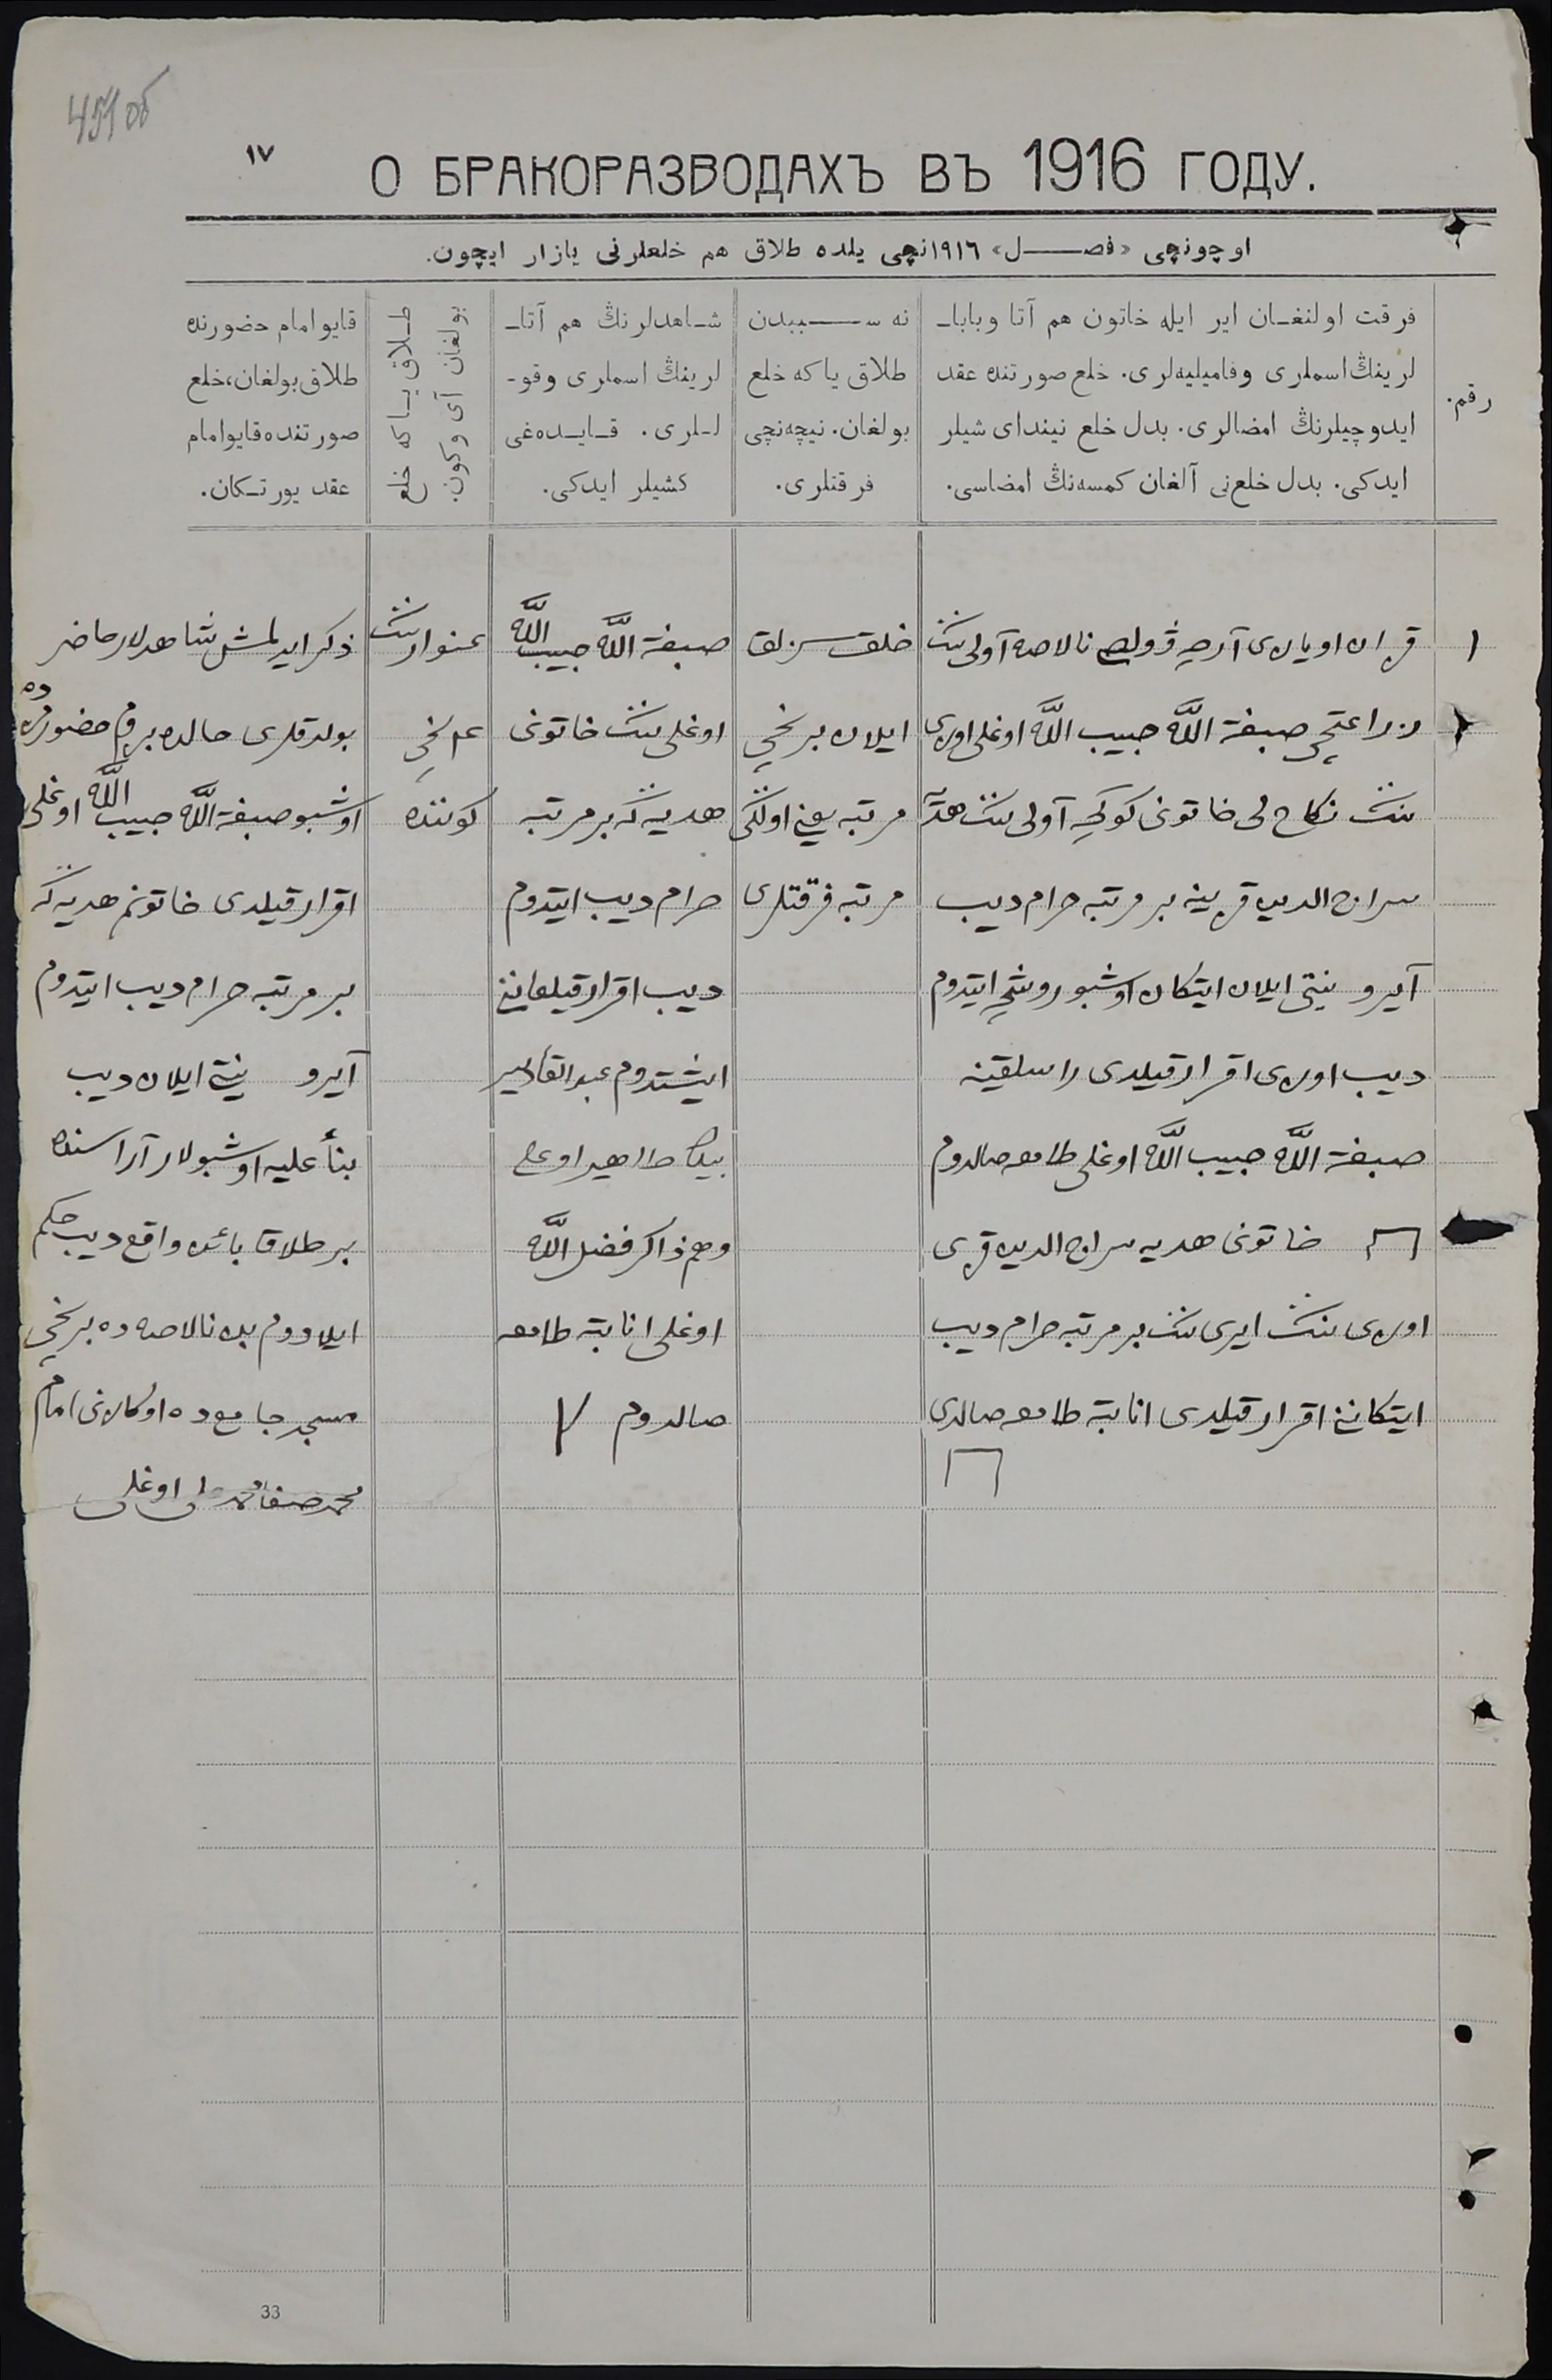 459 об
١٧
О БРАКОРАЗВОДАХЪ ВЪ 1916 ГОДУ.
اوچونچی «فصل» ١٩١٦نچی یلده طلاق هم خلعلرنی یازار ایچون.
رقم.
فرقت اولنغان ایر ایله خاتون هم آتا وبابا-
لرینڭ اسملری وفامیلیه‌لری. خلع صورتنده عقد
ایدوچیلرنڭ امضالری. بدل خلع نیندای شیلر
ایدکی. بدل خلع‌نی آلغان کمسه‌نڭ امضاسی.
نه سببدن
طلاق یا که خلع
بولغان. نیچه‌نچی
فرقتلری.
شاهدلرنڭ هم آتا-
لرینڭ اسملری وفو-
لـلری. قایده‌غی
کشیلر ایدکی.
طلاق یا که خلع
بولغان آی وکون.
قایو امام حضورنده
طلاق بولغان، خلع
صورتنده قایو امام
عقد یورتکان.
١
آولی ننڭ
صبغة اللّٰه حبیب اللّٰه اوغلی اوزی
ننڭ نکاح لی خاتونی آولی ننڭ
سراج الدین قزینه بر مرتبه حرام دیب
آیرو نیتی ایلان ایتکان اوشبو روشچه ایتدوم
دیب اوزی اقرار قیلدی راسلقینه
صبغة اللّٰه حبیب اللّٰه اوغلی طامغه صالدوم
خاتونی هدیه سراج الدین قزی
اوزی ننڭ ایری ننڭ بر مرتبه حرام دیب
ایتکاننی اقرار قیلدی انابته طامغه صالدی
خلق سزلق
ایلان برنچی
مرتبه یعنی اولگی
مرتبه فرقتلری
صبغة اللّٰه حبیب اللّٰه
اوغلی ننڭ خاتونی
هدیه نی بر مرتبه
حرام دیب ایتدوم
دیب اقرار قیلغاننی
ایشتدوم عبدالقادیر
اوغلی
وهم ذاکر فضل اللّٰه
اوغلی انابته طامغه
صالدوم
عنوار ننڭ
نچی
کوننده
ذکر ایدلمش شاهدلار حاضر
بولدقلری حالده حضورمزده
اوشبو صبغة اللّٰه حبیب اللّٰه اوغلی
اقرار قیلدی خاتونم هدیه نی
بر مرتبه حرام دیب ایتدوم
آیرو نیتی ایلان دیب
بنأ علیه اوشبولار آراسنده
بر طلاق بائن واقع دیب حکم
ایلادوم برنچی
مسجد جامع ده امام
اوغلی
33